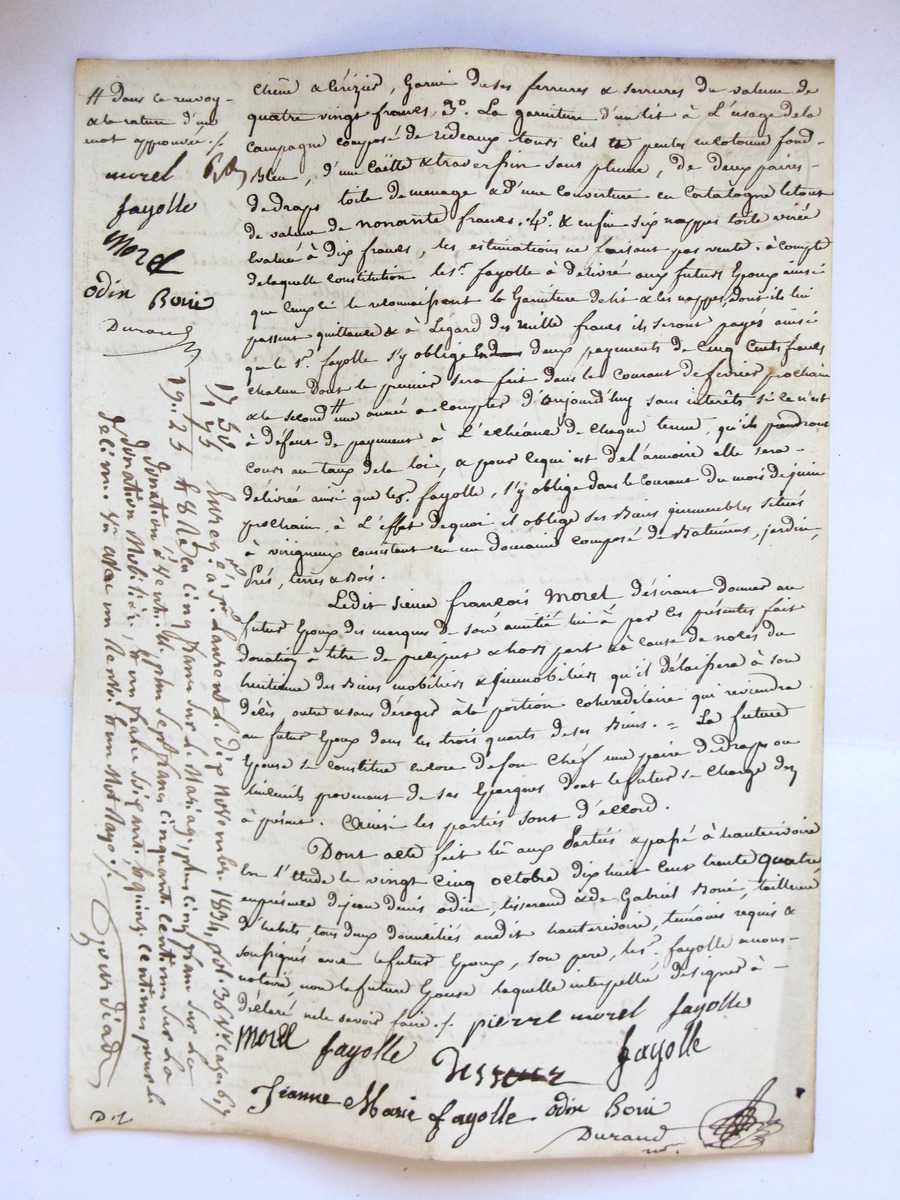 # dans ce renvoy
& la rature d'un
mot approuvés ./.
morel
fayolle
Morel
odin Boué
Durand
chêne & cérizier, garni de ses ferrures & serrures de valeur de
quatre vingt francs, 3º. La garniture d'un lit à L'usage de la
campagne composé de rideaux tours ciel & pentes en cotonne fond
Bleu, d'une Coëtte & traversin sans plume, de deux paires
de draps toile de menage & d'une couverture en Catalogne le tout
de valeur de nonante francs. 4º. & enfin six nappes toile
Evalué à dix francs, les estimations ne faisant pas vente. à compte
de laquelle constitution le sr. fayolle à délivré aux futurs Epoux ainsi
que ceux ci le reconnaissent la Garniture de lit & les nappes, dont ils lui
passent quittance & à L'égard des mille francs ils seront payés ainsi
que le sr. fayolle s'y oblige en deux payements de Cinq Cents francs
chacun dont le premier sera fait dans le Courant de février prochain
& le second # une année a compter d'aujourd'huy sans interêts si ce n'est
à défaut de payement à L'echéance de chaque terme, qu'ils prendront
cours au taux de la loi, & pour ce qui est de l'armoire elle sera
délivrée ainsi que le sr. fayolle, s'y oblige dans le Courant du mois de juin
prochain, à L'effet de quoi il oblige ses Biens immeubles situés
à virigneux consistant en un domaine composé de Batiments, jardin,
Prés, terres & Bois.
Ledit sieur françois Morel désirant donner au
futur Epoux des marques de son amitié lui à par ces présentes fait
donation à titre de préciput & hors part & à cause de noces du
huitieme des Biens mobiliers & jmmobiliers qu'il délaissera à son
décès outre & sans déroger à la portion cohereditaire qui reviendra
au futur Epoux dans les trois quarts de ses Biens. = La future
Epouse se constitue encore de son Chéf une paire de draps ou
linceuils provenant de ses Epargnes dont le futur se charge dez
à présent. Ainsi les parties sont d'accord.
Dont acte fait lû aux Parties & passé à hauterivoire
En l'Etude le vingt Cinq octobre dix huit cent trente quatre
en présence de jean denis odin, tisserand & de Gabriel Boué, tailleur
d'habits, tous deux domiciliés audit hauterivoire, témoins requis &
soussignés avec le futur Epoux, son pere, le sr. fayolle & nous
notaire, non la future Epouse laquelle interpellée de signer à
déclaré ne le savoir faire ./. pierre morel fayolle
Morel fayolle fayolle
Jeanne Marie fayolle odin Boué
Durand
nre.
17 50
1 75
19.. 25
Enreg. é à St. Laurent le dix novembre 1834, fol. 36 Vº. Cases 6/7
& 8 Reçu cinq francs sur le Mariage, plus cinq francs sur la
donation éventuelle, plus sept francs cinquante centimes sur la
donation Mobilière, & un franc soixante quinze centimes pour le
décime. Vû avec un Renvoi & un Mot Rayé ./.
D.d